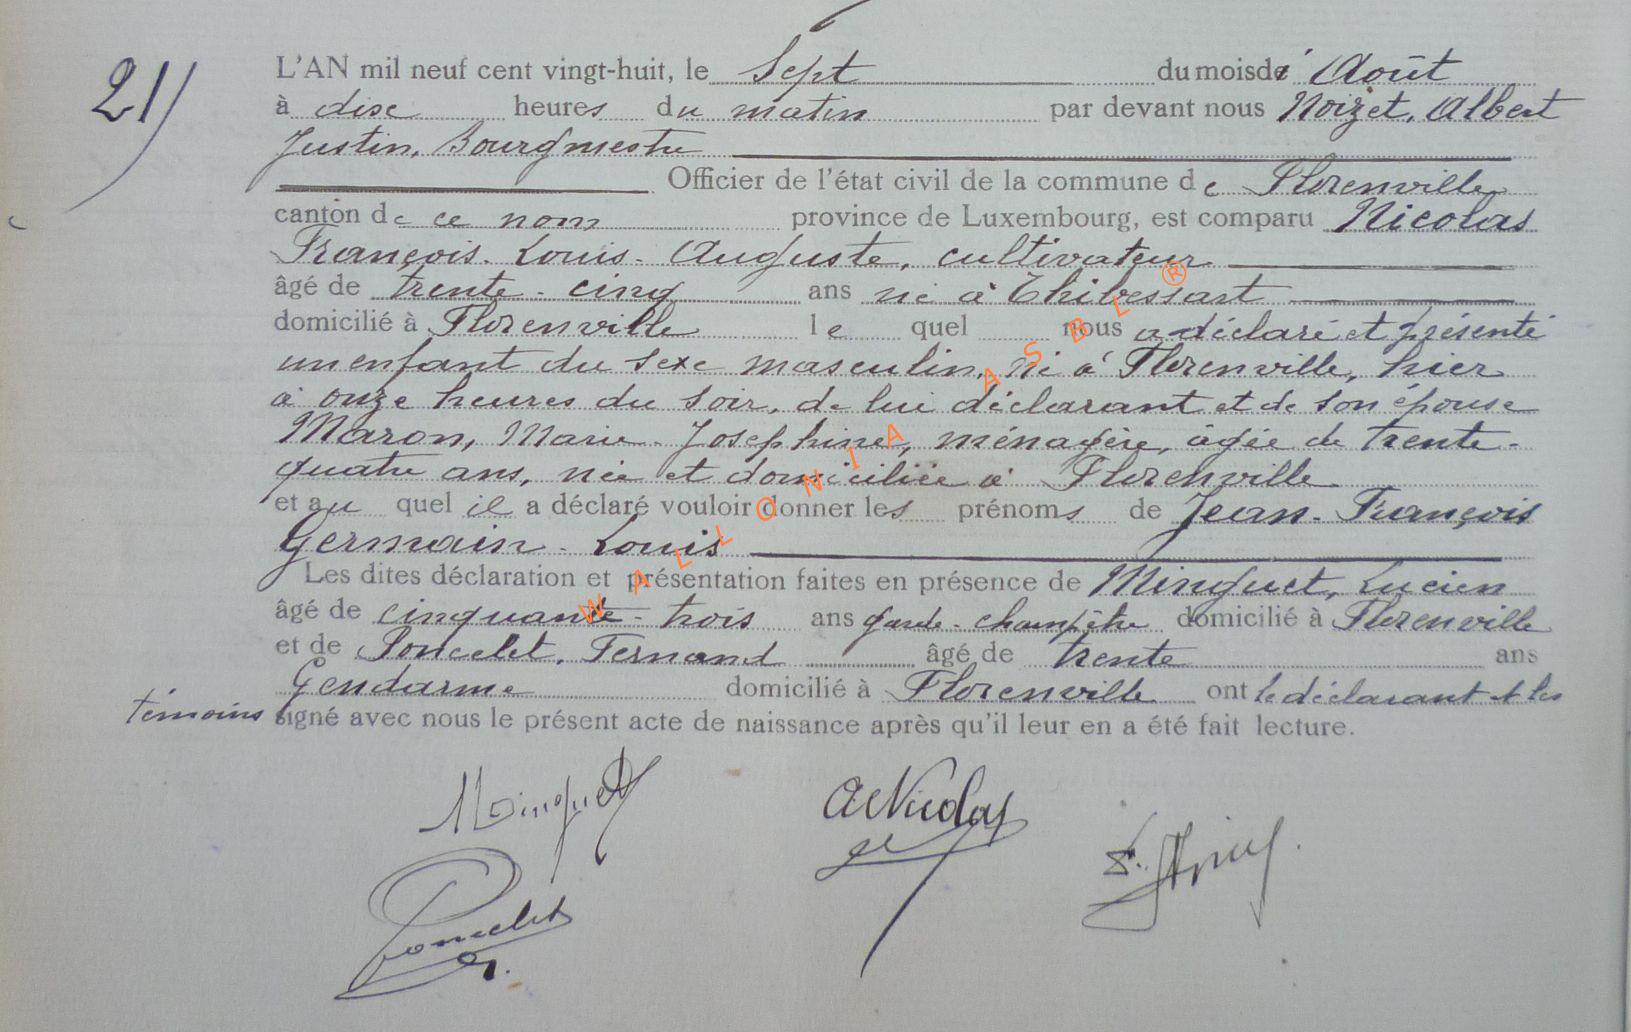 21)
L'AN mil neuf cent vingt-huit, le Sept du mois d' Août
à dix heures du matin par devant nous Noizet, Albert
Justin, Bourgmestre
Officier de l'état civil de la commune de Florenville
canton de ce nom province de Luxembourg, est comparu Nicolas
François-Louis-Auguste, cultivateur
âgé de trente-cinq ans né à Thibessart
domicilié à Florenville le quel nous a déclaré et présenté
un enfant du sexe masculin, né à Florenville, hier
à onze heures du soir, de lui déclarant et de son épouse
Maron, Marie-Josephine, ménagère, âgée de trente-
quatre ans, née et domiciliée à Florenville
et au quel il a déclaré vouloir donner les prénoms de Jean-François
Germain-Louis
Les dites déclaration et présentation faites en présence de Minguet, Lucien
âgé de cinquante-trois ans garde-champêtre domicilié à Florenville
et de Poncelet, Fernand âgé de trente ans
Gendarme domicilié à Florenville ont le déclarant et les
témoins signé avec nous le présent acte de naissance après qu'il leur en a été fait lecture.
Minguet
A Nicolas
Poncelet
WALLONIA ASBL ®